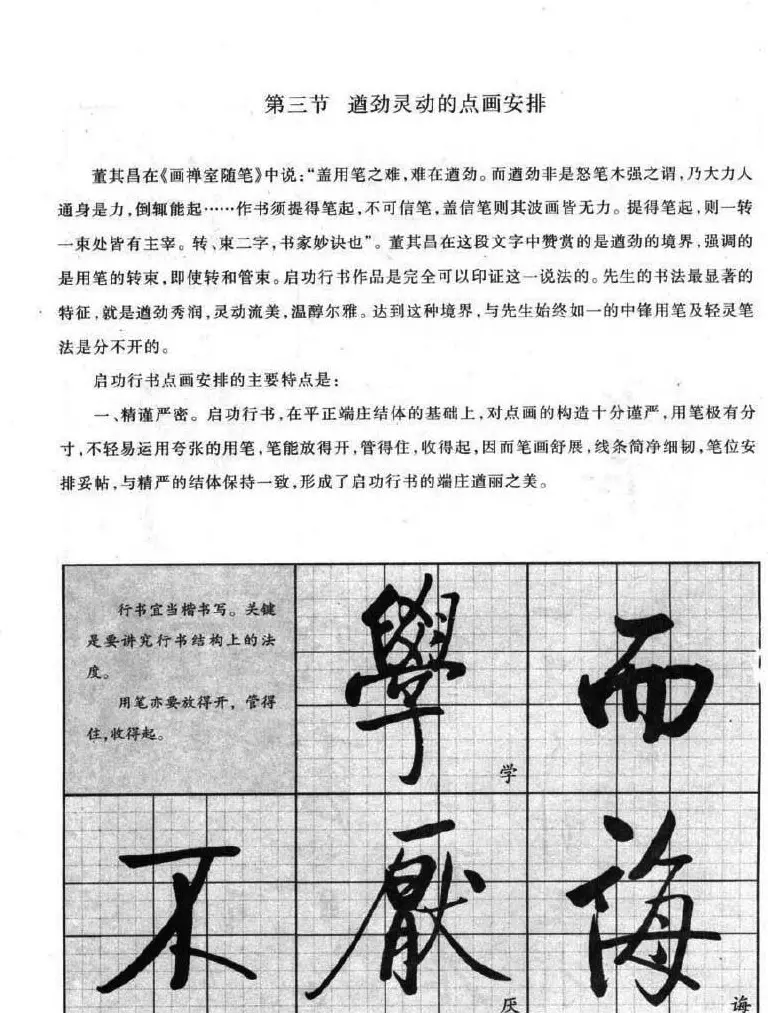 第三节 遒劲灵动的点画安排
董其昌在《画禅室随笔》中说：“盖用笔之难，难在遒劲。而遒劲非是怒笔木强之谓，乃大力人
通身是力，倒辄能起……作书须提得笔起，不可信笔，盖信笔则其波画皆无力。提得笔起，则一转
一束处皆有主宰。转、束二字，书家妙诀也”。董其昌在这段文字中赞赏的是遒劲的境界，强调的
是用笔的转束，即使转和管束。启功行书作品是完全可以印证这一说法的。先生的书法最显著的
特征，就是遒劲秀润，灵动流美，温醇尔雅。达到这种境界，与先生始终如一的中锋用笔及轻灵笔
法是分不开的。
启功行书点画安排的主要特点是：
一、精谨严密。启功行书，在平正端庄结体的基础上，对点画的构造十分谨严，用笔极有分
寸，不轻易运用夸张的用笔，笔能放得开，管得住，收得起，因而笔画舒展，线条简净细韧，笔位安
排妥帖，与精严的结体保持一致，形成了启功行书的端庄遒丽之美。
行书宜当楷书写。关键
是要讲究行书结构上的法
度。
用笔亦要放得开，管得
住，收得起。
學 而
学
不 厭 誨
厌 诲